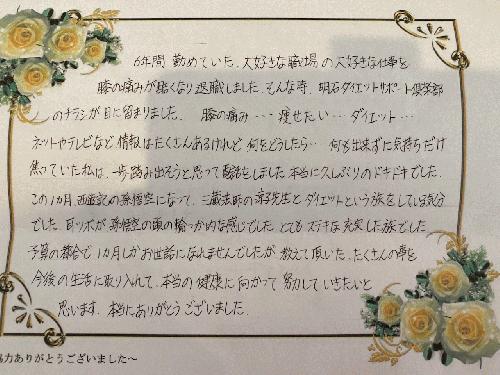 6年間 勤めていた、大好きな職場の大好きな仕事を
膝の痛みが酷くなり退職しました。そんな時、明石ダイエットサポート倶楽部
のチラシが目に留まりました。 膝の痛み… 痩せたい… ダイエット…
ネットやテレビなど情報はたくさんあるけれど 何をどうしたら… 何も出来ずに気持ちだけ
焦っていた私は、一歩踏み出そうと思って電話をしました 本当に久しぶりのドキドキでした。
この1か月 西遊記の孫悟空になって、三蔵法師の涼子先生とダイエットという旅をしている気分
でした。耳ツボが孫悟空の頭の輪っか的な感じでした。とてもステキな充実した旅でした。
予算の都合で1カ月しかお世話になれませんでしたが 教えて頂いた、たくさんの事を
今後の生活に取り入れて、本当の健康に向かって努力していきたいと
思います。本当にありがとうございました。
協力ありがとうございました〜